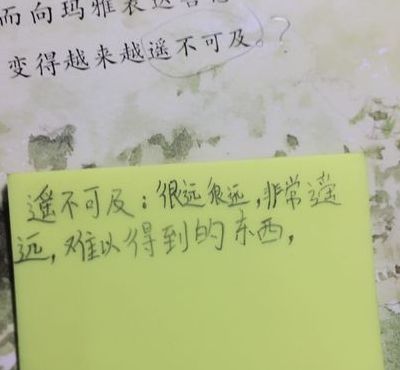 而向玛雅表达
变得越来越遥不可及。?
遥不可及：很远很远，非常遥
远，难以得到的东西，